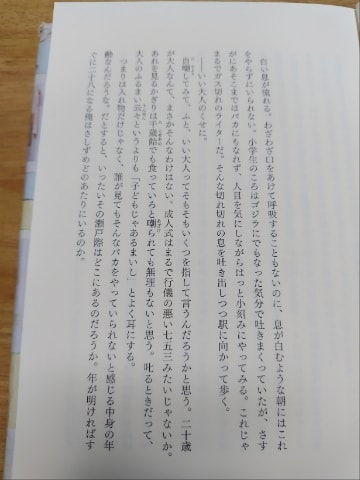 白い息が流れる。わざわざ口をあけて呼吸することもないのに、息が白むような朝にはこれ
をやらずにいられない。小学生のころはゴジラにでもなった気分で吐きまくっていたが、さす
がにあそこまではバカにもなれず、人目を気にしながらはっと小刻みにやってみる。これじゃ
まるでガス切れのライターだ。そんな切れ切れの息を吐き出しつつ駅に向かって歩く。
――いい大人のくせに。
自嘲してみて、ふと、いい大人ってそもそもいくつを指して言うんだろうかと思う。二十歳
が大人なんて、まさかそんなわけはない。成人式はまるで行儀の悪い七五三みたいじゃないか。
あれを見るかぎりは千歳飴でも食っていろと嘲られても無理もないと思う。叱るときだって、
大人のふるまい云々というよりも「子どもじゃあるまいし」とよく耳にする。
つまりは入れ物だけじゃなく、誰が見てもそんなバカをやっていられないと感じる中身の年
齢なんだろうな。だとすると、いったいその瀬戸際はどこにあるのだろうか。年が明ければす
ぐに二十八になる俺はさしずめどのあたりにいるのか。